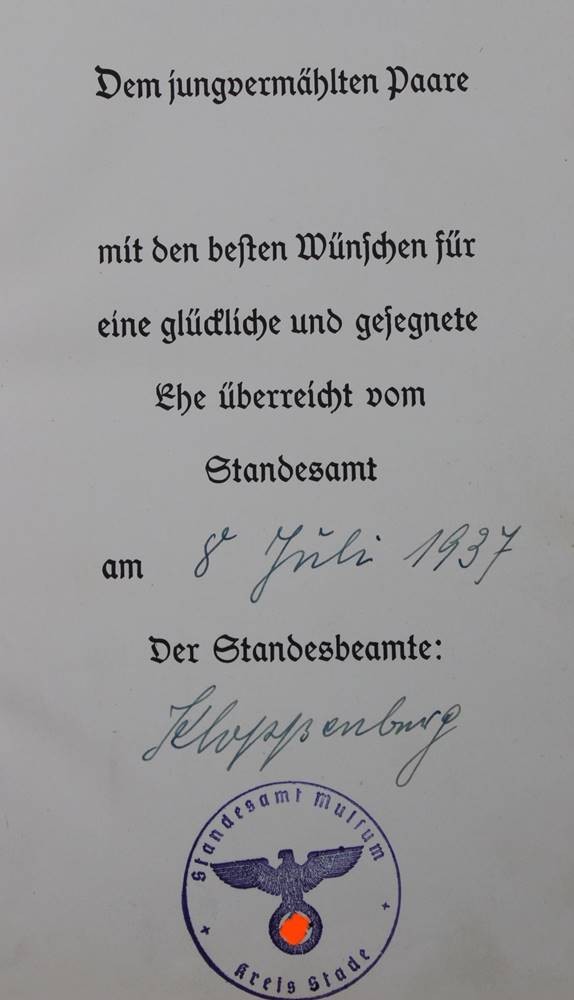 Dem jungvermählten Paare
mit den besten Wünschen für
eine glückliche und gesegnete
Ehe überreicht vom
Standesamt
am 8 Juli 1937
Der Standesbeamte:
Kloppenburg
Standesamt Mulsum
Kreis Stade